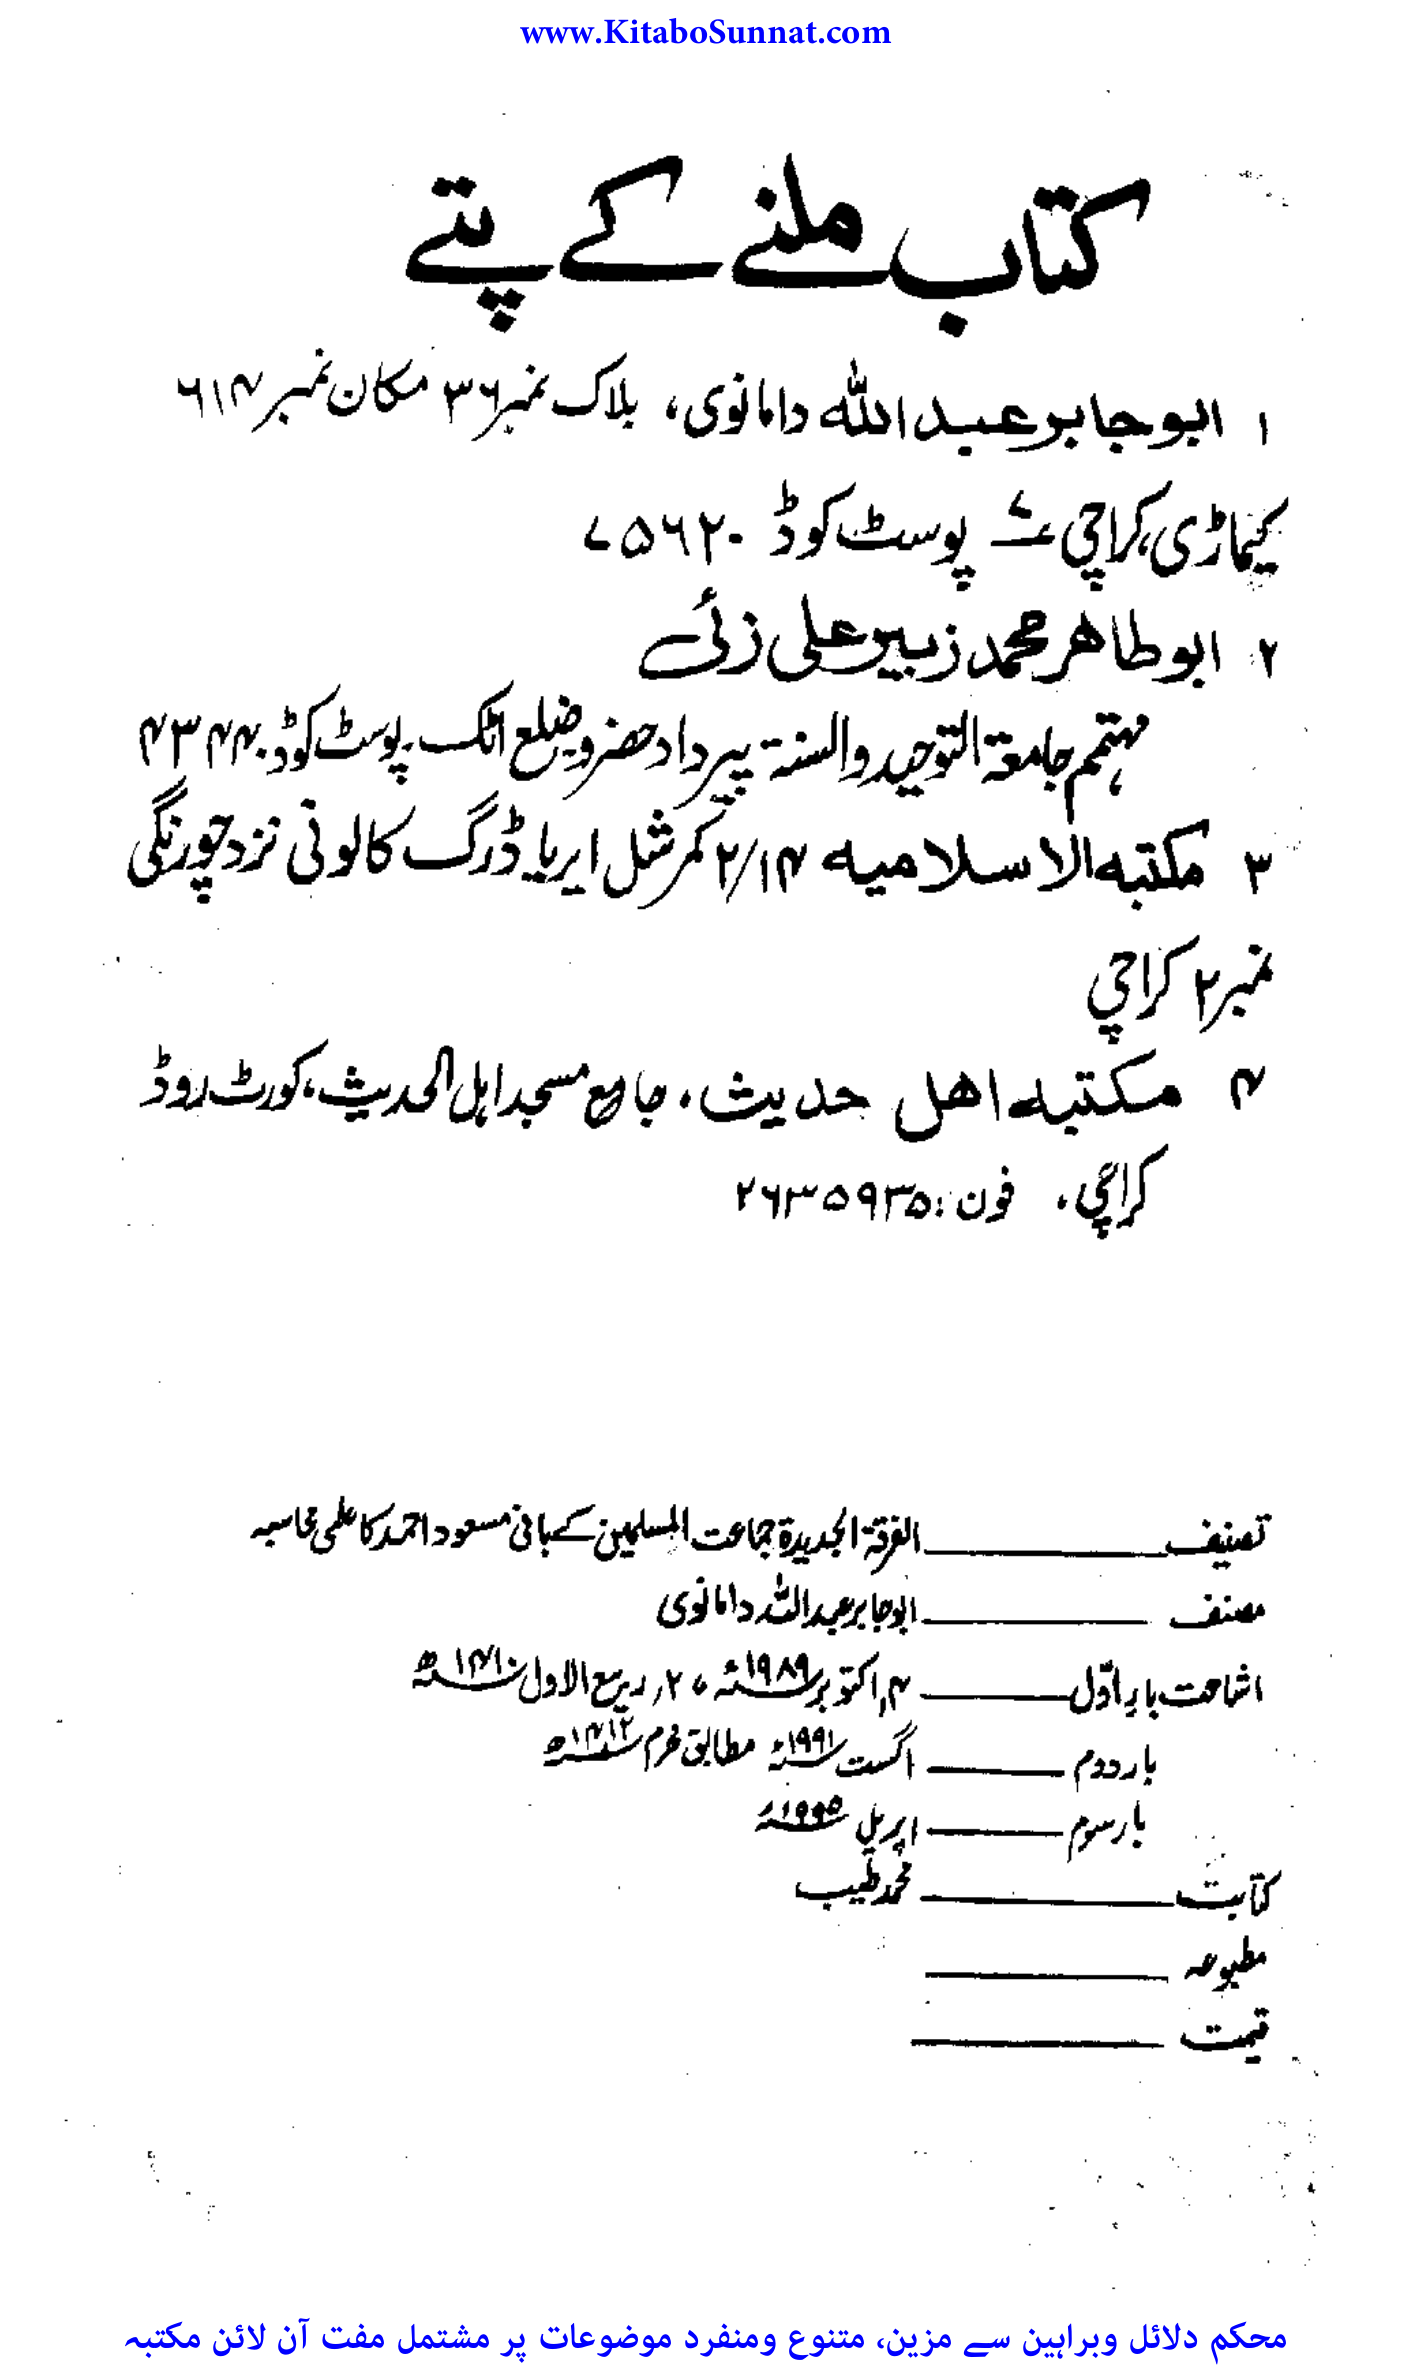 www.KitaboSunnat.com
کتاب ملنے کے پتے
۱ ابوجابر عبداللہ دامانوی، بلاک نمبر ۳۶ مکان نمبر ۶۱۴
کیماڑی، کراچی ۷ پوسٹ کوڈ ۷۵۶۲۰
۲ ابوطاھر محمد زبیر علی زئی
مہتمم جامعۃ التوحید والسنۃ پیرداد حضرو ضلع اٹک۔ پوسٹ کوڈ ۴۳۴۴۰
۳ مکتبہ الاسلامیہ ۲/۱۴ کمرشل ایریا ڈرگ کالونی نزد چورنگی
نمبر ۲ کراچی
۴ مکتبہ اھل حدیث، جامع مسجد اہل الحدیث، کورٹ روڈ
کراچی، فون: ۲۶۳۵۹۳۵
تصنیف ــــ الفرقۃ الجدیدۃ جماعت المسلمین کے بانی مسعود احمد کا علمی محاسبہ
مصنف ــــ ابوجابر عبداللہ دامانوی
اشاعت بار اوّل ــــ ۴؍ اکتوبر ۱۹۸۹ء، ۲؍ ربیع الاول ۱۴۱۰ھ
بار دوم ــــ اگست ۱۹۹۱ء مطابق محرم ۱۴۱۲ھ
بار سوم ــــ اپریل ۱۹۹۵ء
کتابت ــــ محمد طیب
مطبوعہ ــــ
قیمت ــــ
محکم دلائل وبراہین سے مزین، متنوع ومنفرد موضوعات پر مشتمل مفت آن لائن مکتبہ